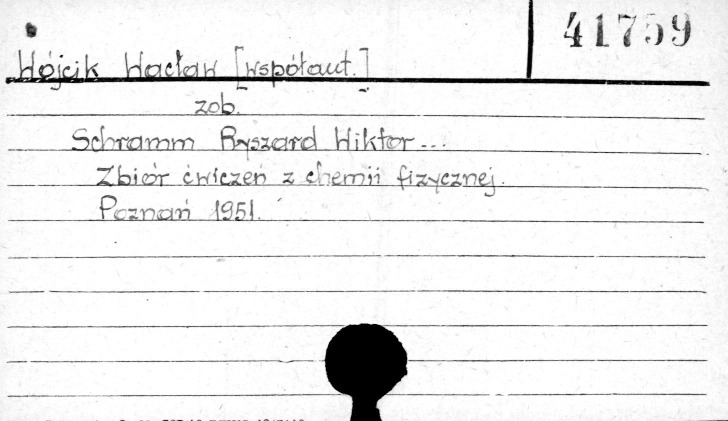 41759
Wójcik Wacław [współaut.]
zob.
Schramm Ryszard Wiktor...
Zbiór ćwiczeń z chemii fizycznej.
Poznań 1951.